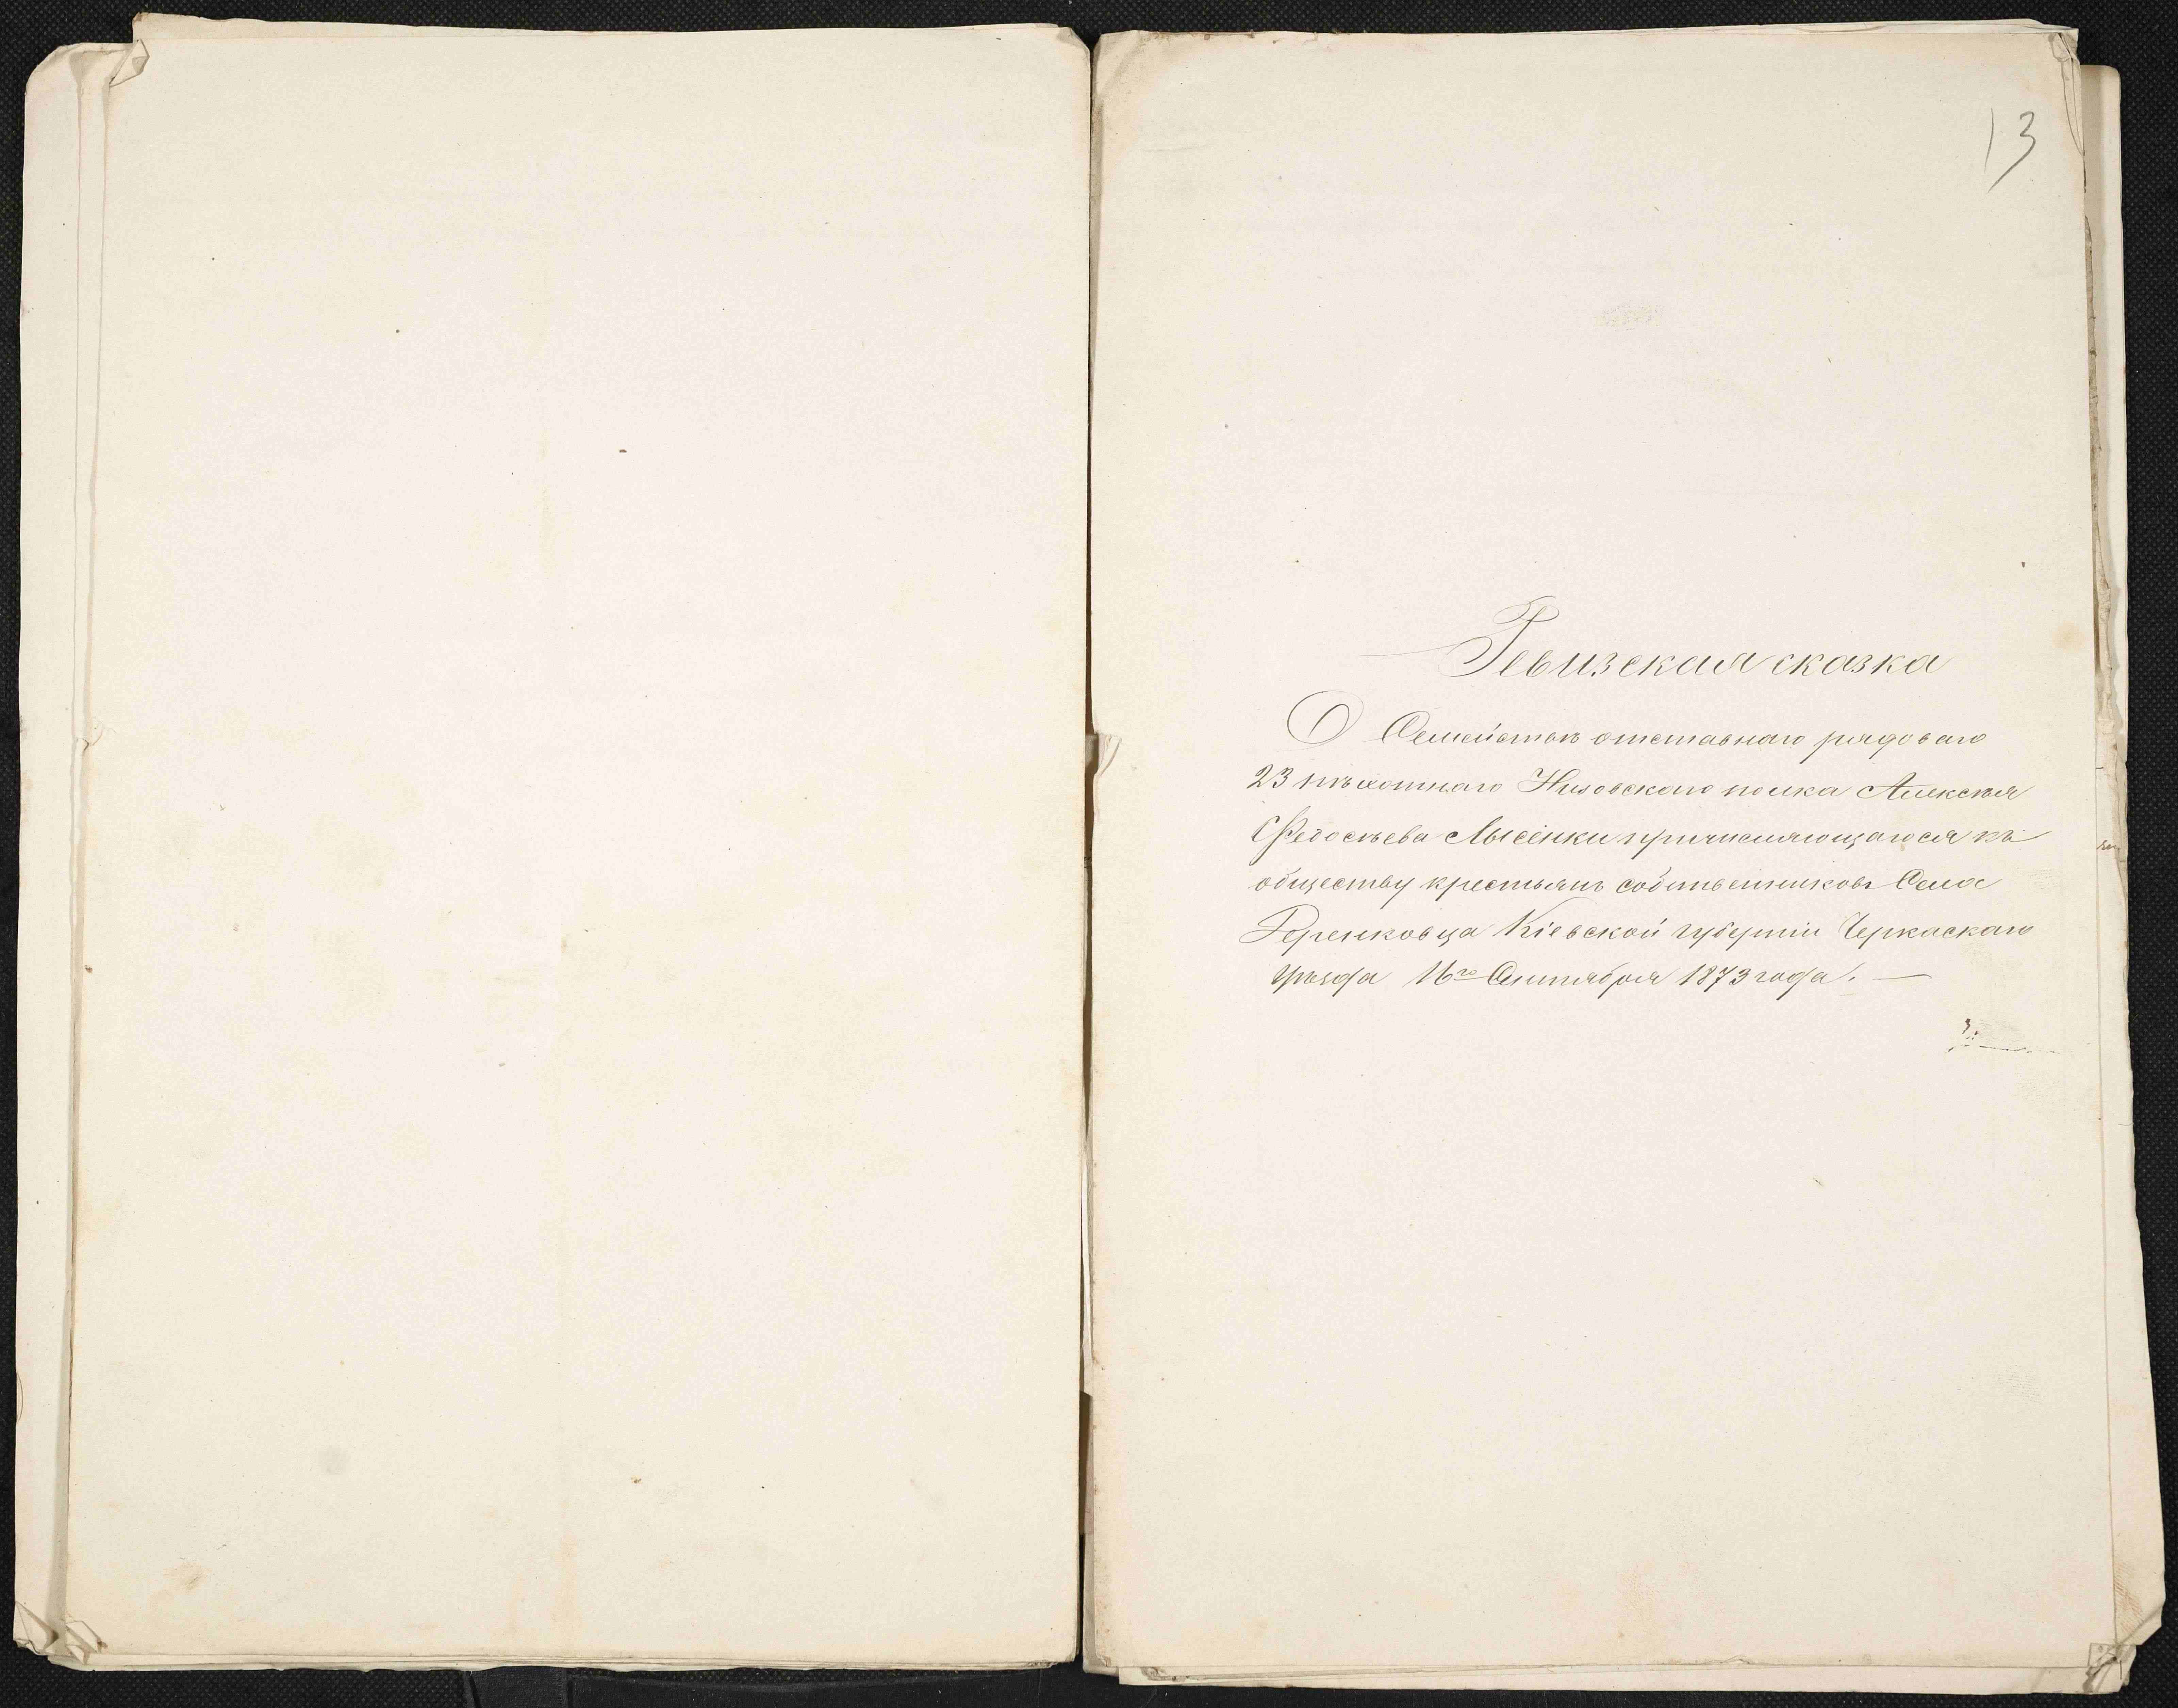 13
Ревизская сказка
О Семействѣ отставнаго рядоваго
23 пѣхотнаго Низовскаго полка Алексѣя
Федосѣева Лысенки причисляющагося къ
обществу крестьянъ собственниковъ Села
Геренковца Кіевской губерніи Черкаскаго
уѣзда 16го Сентября 1873 года. —